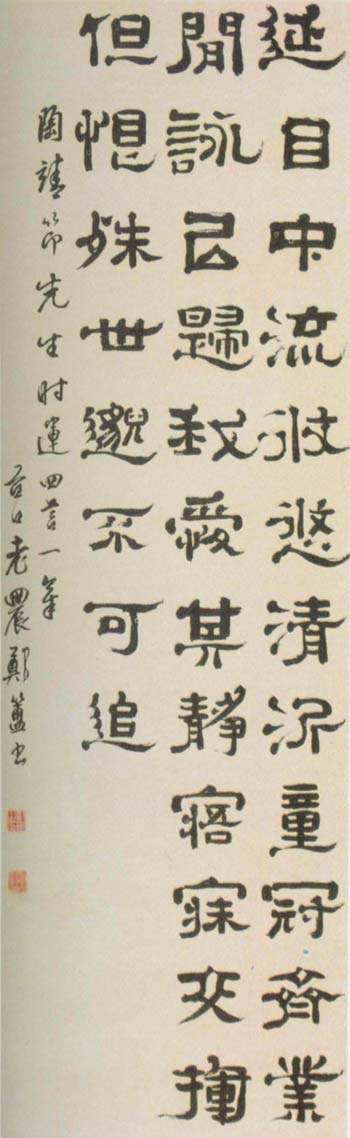 延目中流攸悠清沂童冠齊業
閒詠㠯歸我愛其靜寤寐交揮
但恨殊世邈不可追
陶靖節先生时運四言一章
谷口老農鄭簠书